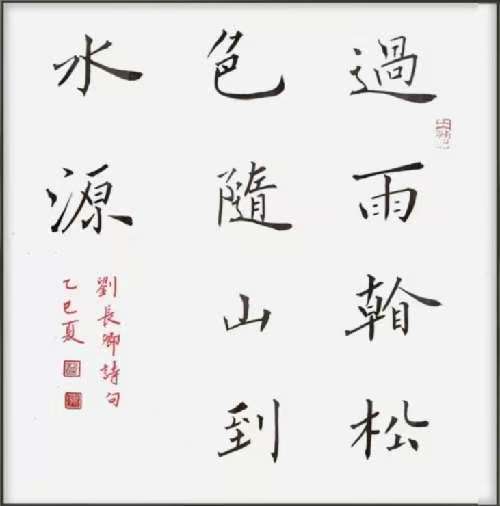 過雨松
色隨山到
水源
劉長卿詩句
乙巳夏